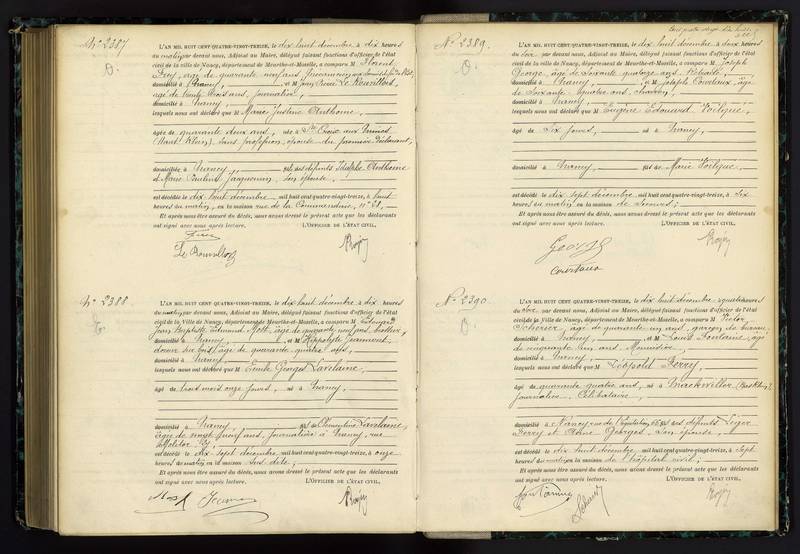 N° 2387
L'AN MIL HUIT CENT QUATRE-VINGT-TREIZE, le dix huit décembre à dix heures
du matin par devant nous, Adjoint au Maire, délégué faisant fonctions d'officier de l'état
civil de la ville de Nancy, département de Meurthe-et-Moselle, a comparu M Florent
âgé de quarante neuf ans,
domicilié à Nancy, et M
âgé de vingt trois ans, journalier,
domicilié à Nancy,
lesquels nous ont déclaré que M Marie Justine Anthoine,
âgée de quarante deux ans, née à Ste Croix aux Mines
(Haut Rhin), sans profession, épouse du premier déclarant,
domiciliée à Nancy, fille des défunts Anthoine
et Marie Pauline Jacquemin, son épouse,
est décédée le dix huit décembre mil huit cent quatre-vingt-treize, à huit
heures du matin, en la maison rue de la Commanderie, n°
Et après nous être assuré du décès, nous avons dressé le présent acte que les déclarants
ont signé avec nous après lecture. L'OFFICIER DE L'ÉTAT CIVIL,
N° 2388
L'AN MIL HUIT CENT QUATRE-VINGT-TREIZE, le dix huit décembre à dix heures
du matin par devant nous, Adjoint au Maire, délégué faisant fonctions d'officier de l'état
civil de la Ville de Nancy, département de Meurthe-et-Moselle, a comparu M Edouard
Jean Baptiste Edmond Mott, âgé de quarante neuf ans,
domicilié à Nancy, et M Hippolyte Jeannot,
âgé de quarante quatre ans,
domicilié à Nancy,
lesquels nous ont déclaré que M Emile Georges Lavelaine,
âgé de trois mois onze jours, né à Nancy,
domicilié à Nancy, fils de Clémentine Lavelaine,
âgée de vingt neuf ans, journalière à Nancy, rue
est décédé le dix sept décembre mil huit cent quatre-vingt-treize, à onze
heures du matin en la maison sus dite;
Et après nous être assuré du décès, nous avons dressé le présent acte que les déclarants
ont signé avec nous après lecture. L'OFFICIER DE L'ÉTAT CIVIL,
N° 2389
L'AN MIL HUIT CENT QUATRE-VINGT-TREIZE, le dix huit décembre à deux heures
du soir par devant nous, Adjoint au Maire, délégué faisant fonctions d'officier de l'état
civil de la ville de Nancy, département de Meurthe-et-Moselle, a comparu M Joseph
George, âgé de soixante quatorze ans, Retraité,
domicilié à Nancy, et M Joseph
de soixante quatre ans,
domicilié à Nancy,
lesquels nous ont déclaré que M Eugène Edouard
âgé de six jours, né à Nancy,
domicilié à Nancy, fils de Marie
est décédé le dix sept décembre mil huit cent quatre-vingt-treize, à six
heures du matin en la maison de Secours;
Et après nous être assuré du décès, nous avons dressé le présent acte que les déclarants
ont signé avec nous après lecture. L'OFFICIER DE L'ÉTAT CIVIL,
N° 2390
L'AN MIL HUIT CENT QUATRE-VINGT-TREIZE, le dix huit décembre à quatre heures
du soir par devant nous, Adjoint au Maire, délégué faisant fonctions d'officier de l'état
civil de la Ville de Nancy, département de Meurthe-et-Moselle, a comparu M
âgé de quarante un ans, garçon de bureau,
domicilié à Nancy, et M Louis Fontaine, âgé
de cinquante un ans, Menuisier,
domicilié à Nancy,
lesquels nous ont déclaré que M Léopold Ferry,
âgé de quarante quatre ans, né à
journalier, Célibataire,
domicilié à Nancy, fils des défunts Léger
Ferry et Georges, son épouse,
est décédé le dix huit décembre mil huit cent quatre-vingt-treize, à sept
heures du matin en la maison de l'hôpital civil;
Et après nous être assuré du décès, nous avons dressé le présent acte que les déclarants
ont signé avec nous après lecture. L'OFFICIER DE L'ÉTAT CIVIL,